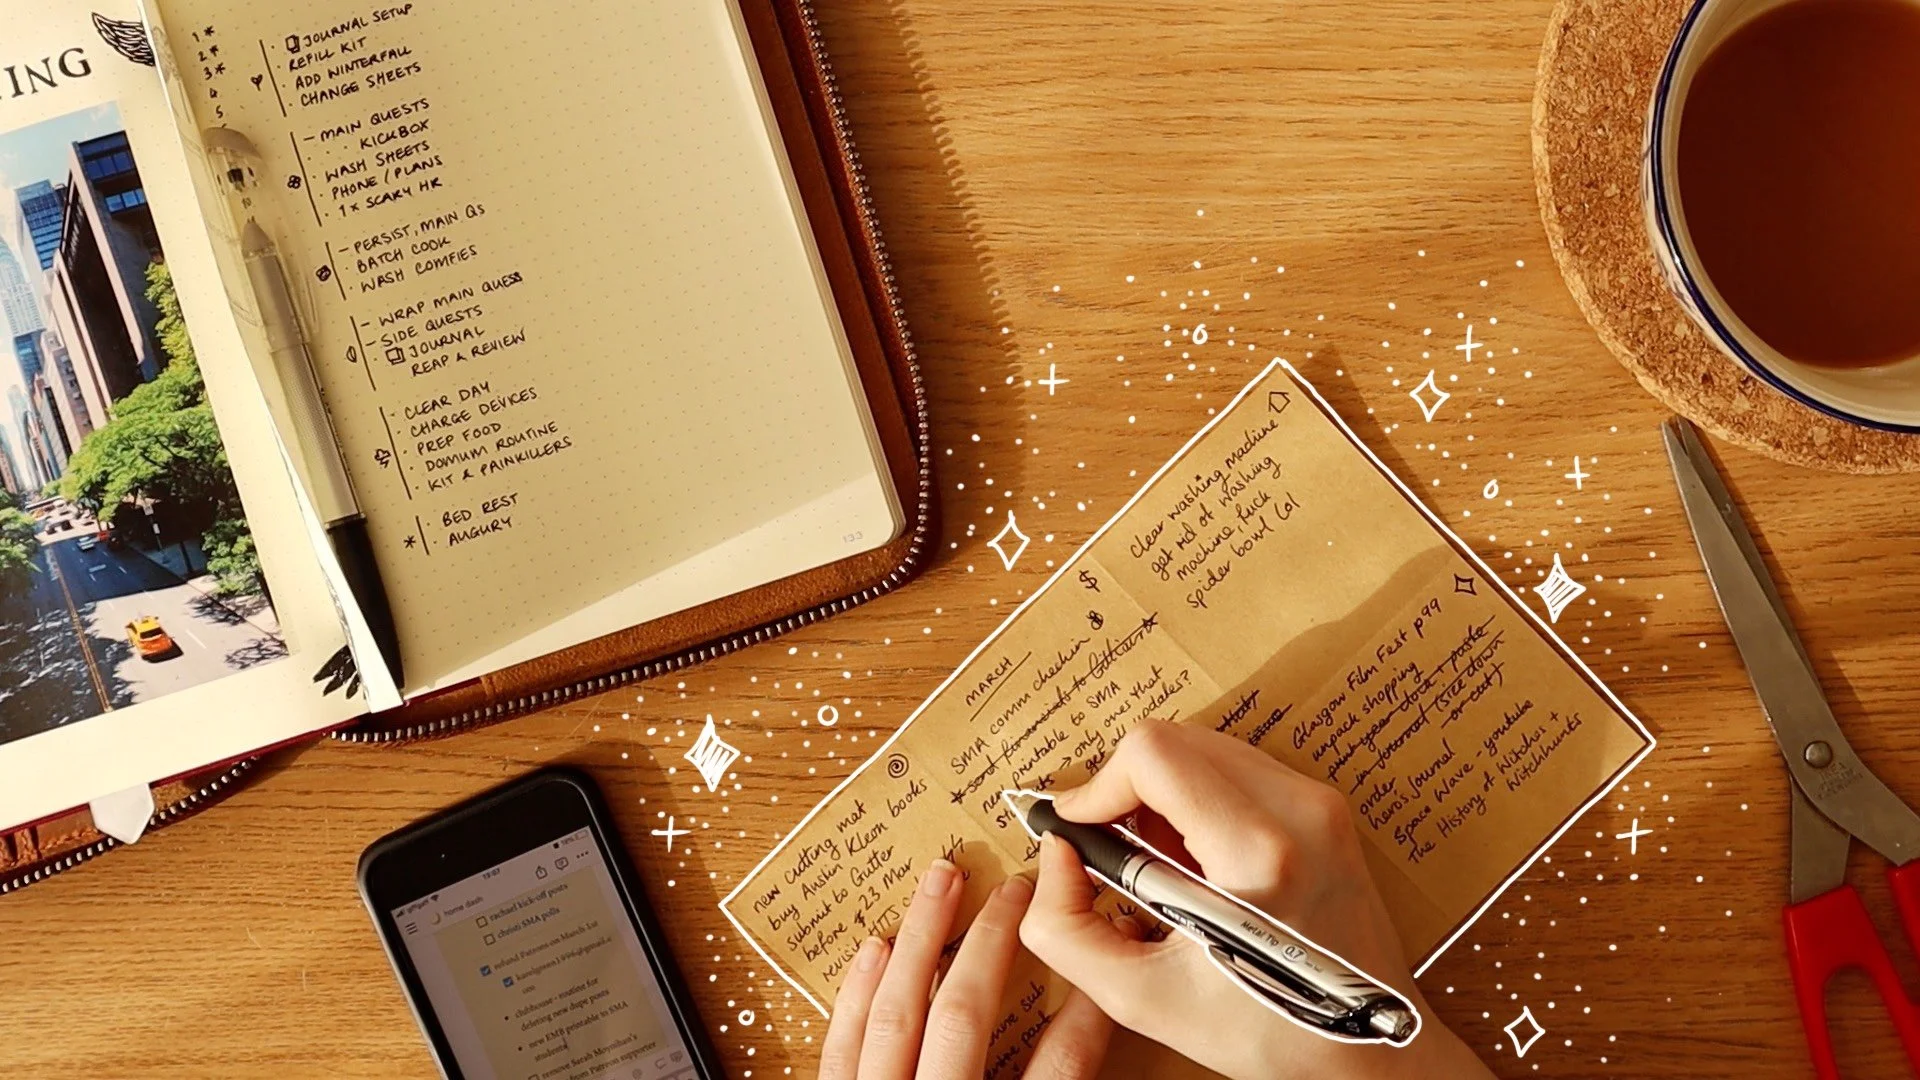 ING
1*
2*
3*
4
5
JOURNAL SETUP
REFILL KIT
ADD WINTERFALL
CHANGE SHEETS
– MAIN QUESTS
KICKBOX
WASH SHEETS
PHONE / PLANS
1x SCARY HR
– PERSIST, MAIN QS
BATCH COOK
WASH COMFIES
– WRAP MAIN QUESTS
– SIDE QUESTS
JOURNAL
REAP & REVIEW
CLEAR DAY
CHARGE DEVICES
PREP FOOD
DOMUM ROUTINE
KIT & PAINKILLERS
BED REST
AUGURY
133
clear washing machine
get rid of washing
machine, fuck
spider bowl lol
$
MARCH
SMA comm check in
send financials to
printable to SMA
→ only ones that
get all updates?
new cutting mat
buy Austin Kleon books
submit to Gutter
before 23 Mar
revisit HTTS
Glasgow Film Fest p99
unpack shopping
print year dots + paste
in journal (size down
or cut)
order
heros journal
Space Wave - youtube
The History of Witches +
Witchhunts
Metal Tip 0.7
19:07
home dash
rachael kick-off posts
christi SMA polls
refund Patreons on March 1st
clubhouse - routine for
deleting new dupe posts
new EMB printable to SMA
students
remove Sarah Moynihan's
from Patreon supporter